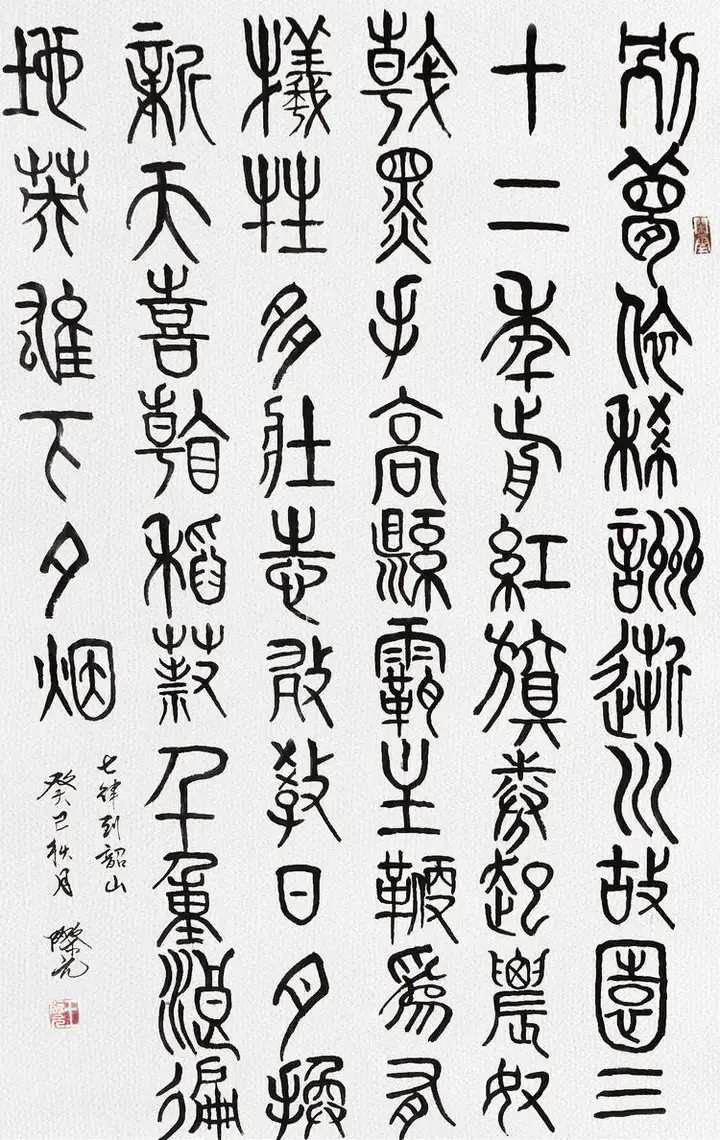 別夢依稀詶逝川故園三
十二年前紅旗卷起農奴
戟黑手高縣霸主鞭為有
犧牲多壯志敢教日月換
新天喜看稻菽千重浪遍
地英雄下夕烟
七律到韶山
癸巳秋月